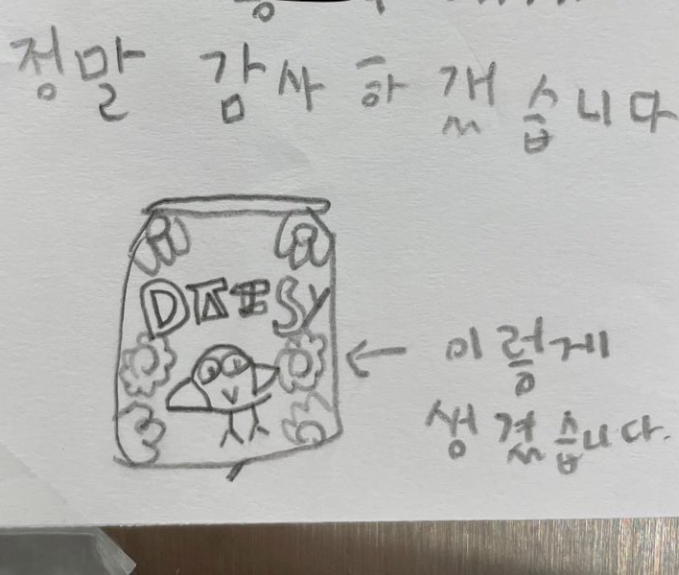 정말 감사하겠습니다
DAISY
← 이렇게
생겼습니다.